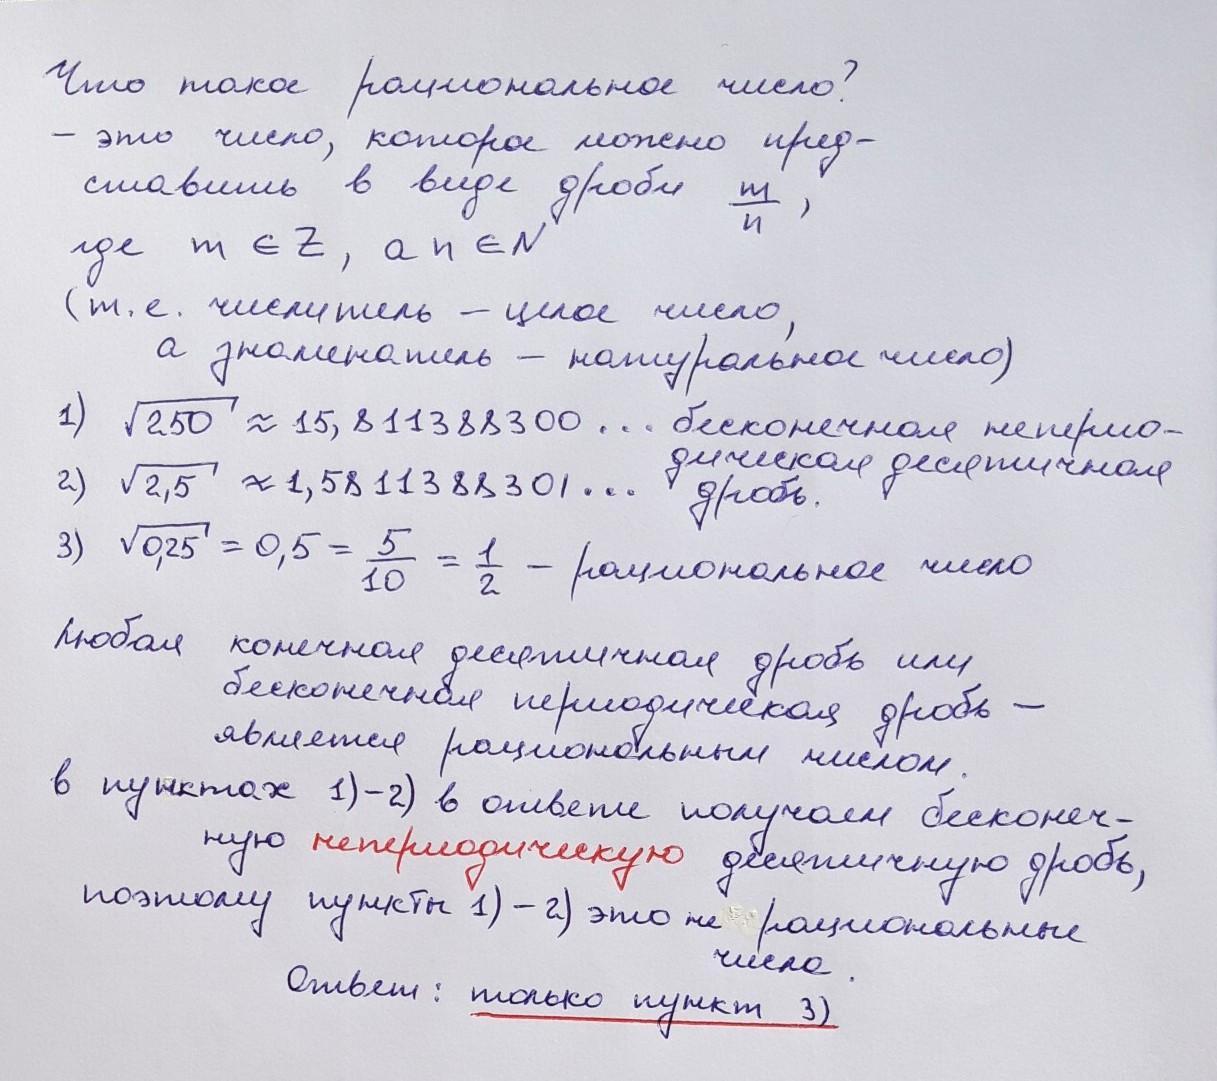 Что такое рациональное число?
– это число, которое можно пред-
ставить в виде дроби m/n,
где m ∈ Z, а n ∈ N
(т.е. числитель – целое число,
а знаменатель – натуральное число)
1) √250 ≈ 15,811388300... бесконечная неперио-
дическая десятичная
2) √2,5 ≈ 1,5811388301... дробь.
3) √0,25 = 0,5 = 5/10 = 1/2 – рациональное число
Любая конечная десятичная дробь или
бесконечная периодическая дробь –
является рациональным числом.
в пунктах 1)-2) в ответе получаем бесконеч-
ную непериодическую десятичную дробь,
поэтому пункты 1)-2) это не рациональные
числа.
Ответ: только пункт 3)